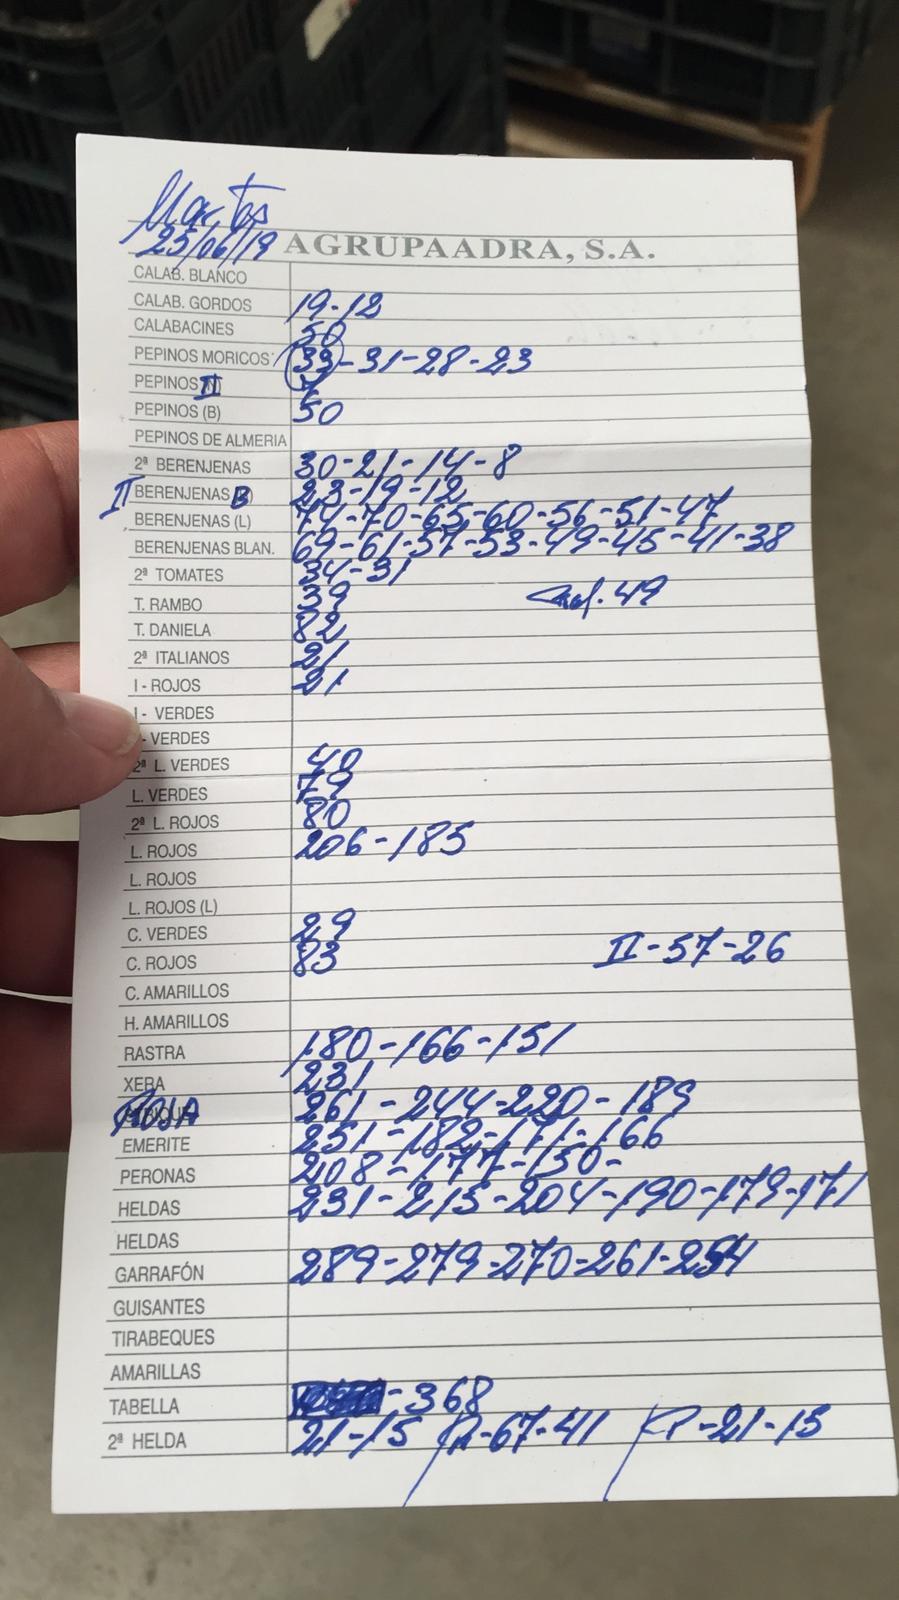 Martes
25/06/19 AGRUPAADRA, S.A.
CALAB. BLANCO
CALAB. GORDOS 19-12
CALABACINES 50
PEPINOS MORICOS 33-31-28-23
PEPINOS II
PEPINOS (B) 50
PEPINOS DE ALMERIA
2ª BERENJENAS 30-21-14-8
II BERENJENAS B 23-19-12
BERENJENAS (L) 74-70-65-60-56-51-47
BERENJENAS BLAN. 69-61-57-53-49-45-41-38
2ª TOMATES 34-31
T. RAMBO 39 49
T. DANIELA 82
2ª ITALIANOS 21
I - ROJOS 21
I - VERDES
- VERDES
2ª L. VERDES 40
L. VERDES 79
2ª L. ROJOS 80
L. ROJOS 206-185
L. ROJOS
L. ROJOS (L)
C. VERDES 29
C. ROJOS 83 II-57-26
C. AMARILLOS
H. AMARILLOS
RASTRA 180-166-151
XERA 231
ROJA 261-244-220-189
EMERITE 251-182-171-166
PERONAS 208-177-150-
HELDAS 231-215-204-190-179-171
HELDAS
GARRAFÓN 289-279-270-261-254
GUISANTES
TIRABEQUES
AMARILLAS
TABELLA -368
2ª HELDA 21-15 R-67-41 P-21-15